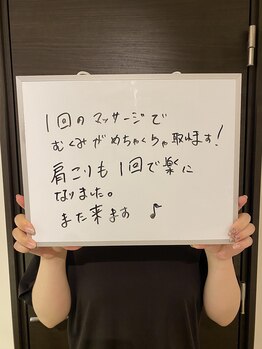 1回のマッサージで
むくみがめちゃくちゃ取れます!
肩こりも1回で楽に
なりました。
また来ます ♪